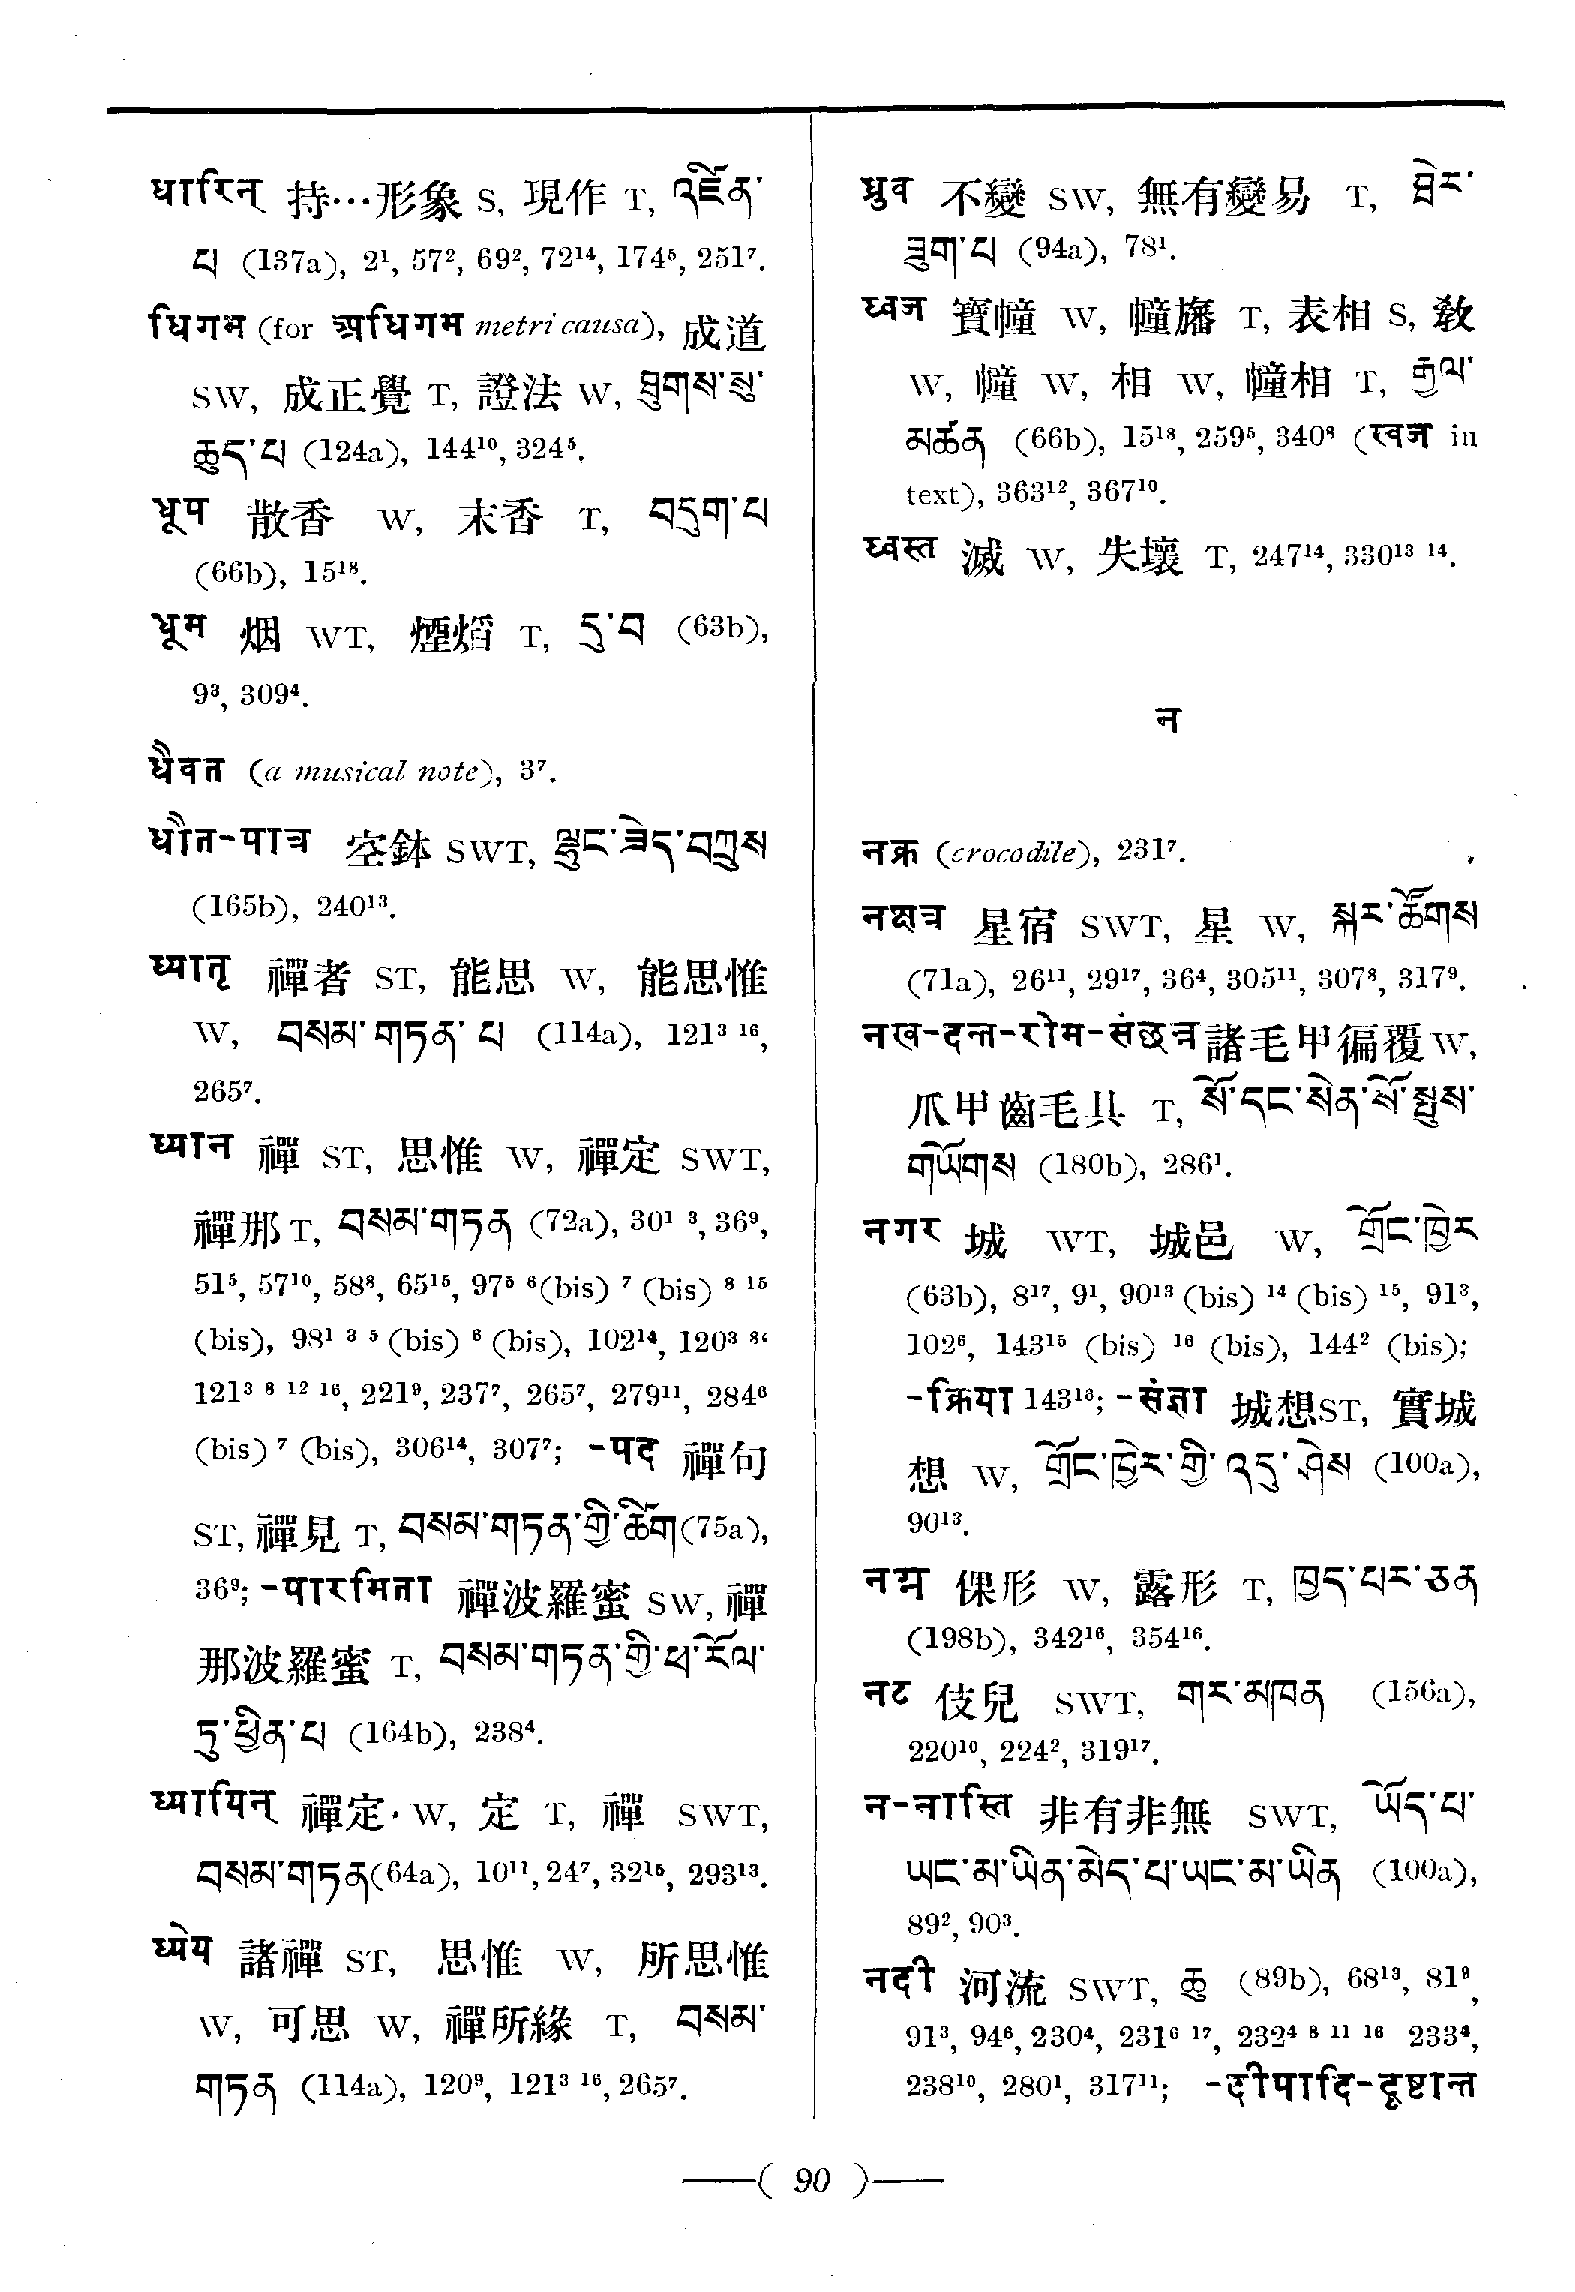 धारिन् 持…形象 S, 現作 T, འཛིན་
པ (137a), 2¹, 57², 69², 72¹⁴, 174⁵, 251⁷.
धिगम (for अधिगम metri causa), 成道
SW, 成正覺 T, 證法 W, ཐུགས་སུ་
ཆུད་པ (124a), 144¹⁰, 324⁵.
धूप 散香 W, 末香 T, བདུག་པ
(66b), 15¹⁸.
धूम 烟 WT, 煙熖 T, དུ་བ (63b),
9³, 309⁴.
धैवत (a musical note), 3⁷.
धौत-पात्र 空鉢 SWT, ལྷུང་ཟེད་བཀྲུས
(165b), 240¹³.
ध्यातृ 禪者 ST, 能思 W, 能思惟
W, བསམ་གཏན་པ (114a), 121³ ¹⁶,
265⁷.
ध्यान 禪 ST, 思惟 W, 禪定 SWT,
禪那 T, བསམ་གཏན (72a), 30¹ ³, 36⁹,
51⁵, 57¹⁰, 58⁸, 65¹⁵, 97⁵ ⁶(bis) ⁷ (bis) ⁸ ¹⁵
(bis), 98¹ ³ ⁵ (bis) ⁶ (bis), 102¹⁴, 120³ ⁸
121³ ⁸ ¹² ¹⁶, 221⁹, 237⁷, 265⁷, 279¹¹, 284⁶
(bis) ⁷ (bis), 306¹⁴, 307⁷; -पद 禪句
ST, 禪見 T, བསམ་གཏན་གྱི་ཚིག (75a),
36⁹; -पारमिता 禪波羅蜜 SW, 禪
那波羅蜜 T, བསམ་གཏན་གྱི་ཕ་རོལ་
ཏུ་ཕྱིན་པ (164b), 238⁴.
ध्यायिन् 禪定 W, 定 T, 禪 SWT,
བསམ་གཏན (64a), 10¹¹, 24⁷, 32¹⁵, 293¹³.
ध्येय 諸禪 ST, 思惟 W, 所思惟
W, 可思 W, 禪所緣 T, བསམ་
གཏན (114a), 120⁹, 121³ ¹⁶, 265⁷.
ध्रुव 不變 SW, 無有變易 T, ཐེར་
ཟུག་པ (94a), 78¹.
ध्वज 寶幢 W, 幢旛 T, 表相 S, 敎
W, 幢 W, 相 W, 幢相 T, རྒྱལ་
མཚན (66b), 15¹⁸, 259⁵, 340⁸ (स्वज in
text), 363¹², 367¹⁰.
ध्वस्त 滅 W, 失壞 T, 247¹⁴, 330¹³ ¹⁴.
न
नक्र (crocodile), 231⁷.
नक्षत्र 星宿 SWT, 星 W, སྐར་ཚོགས
(71a), 26¹¹, 29¹⁷, 36⁴, 305¹¹, 307⁸, 317⁹.
नख-दन्त-रोम-संछन्न 諸毛甲徧覆 W,
爪甲齒毛具 T, སོ་དང་སེན་མོ་སྤུས་
གཡོགས (180b), 286¹.
नगर 城 WT, 城邑 W, གྲོང་ཁྱེར
(63b), 8¹⁷, 9¹, 90¹³ (bis) ¹⁴ (bis) ¹⁵, 91³,
102⁶, 143¹⁵ (bis) ¹⁶ (bis), 144² (bis);
-क्रिया 143¹⁶; -संज्ञा 城想 ST, 實城
想 W, གྲོང་ཁྱེར་གྱི་འདུ་ཤེས (100a),
90¹³.
नग्न 倮形 W, 露形 T, ཁྱད་པར་ཅན
(198b), 342¹⁶, 354¹⁶.
नट 伎兒 SWT, གར་མཁན (156a),
220¹⁰, 224², 319¹⁷.
न-नास्ति 非有非無 SWT, ཡོད་པ་
ཡང་མ་ཡིན་མེད་པ་ཡང་མ་ཡིན (100a),
89², 90³.
नदी 河流 SWT, ཆུ (89b), 68¹³, 81⁹,
91³, 94⁶, 230⁴, 231⁶ ¹⁷, 232⁴ ⁸ ¹¹ ¹⁶ 233⁴,
238¹⁰, 280¹, 317¹¹; -दीपादि-दृष्टान्त
( 90 )